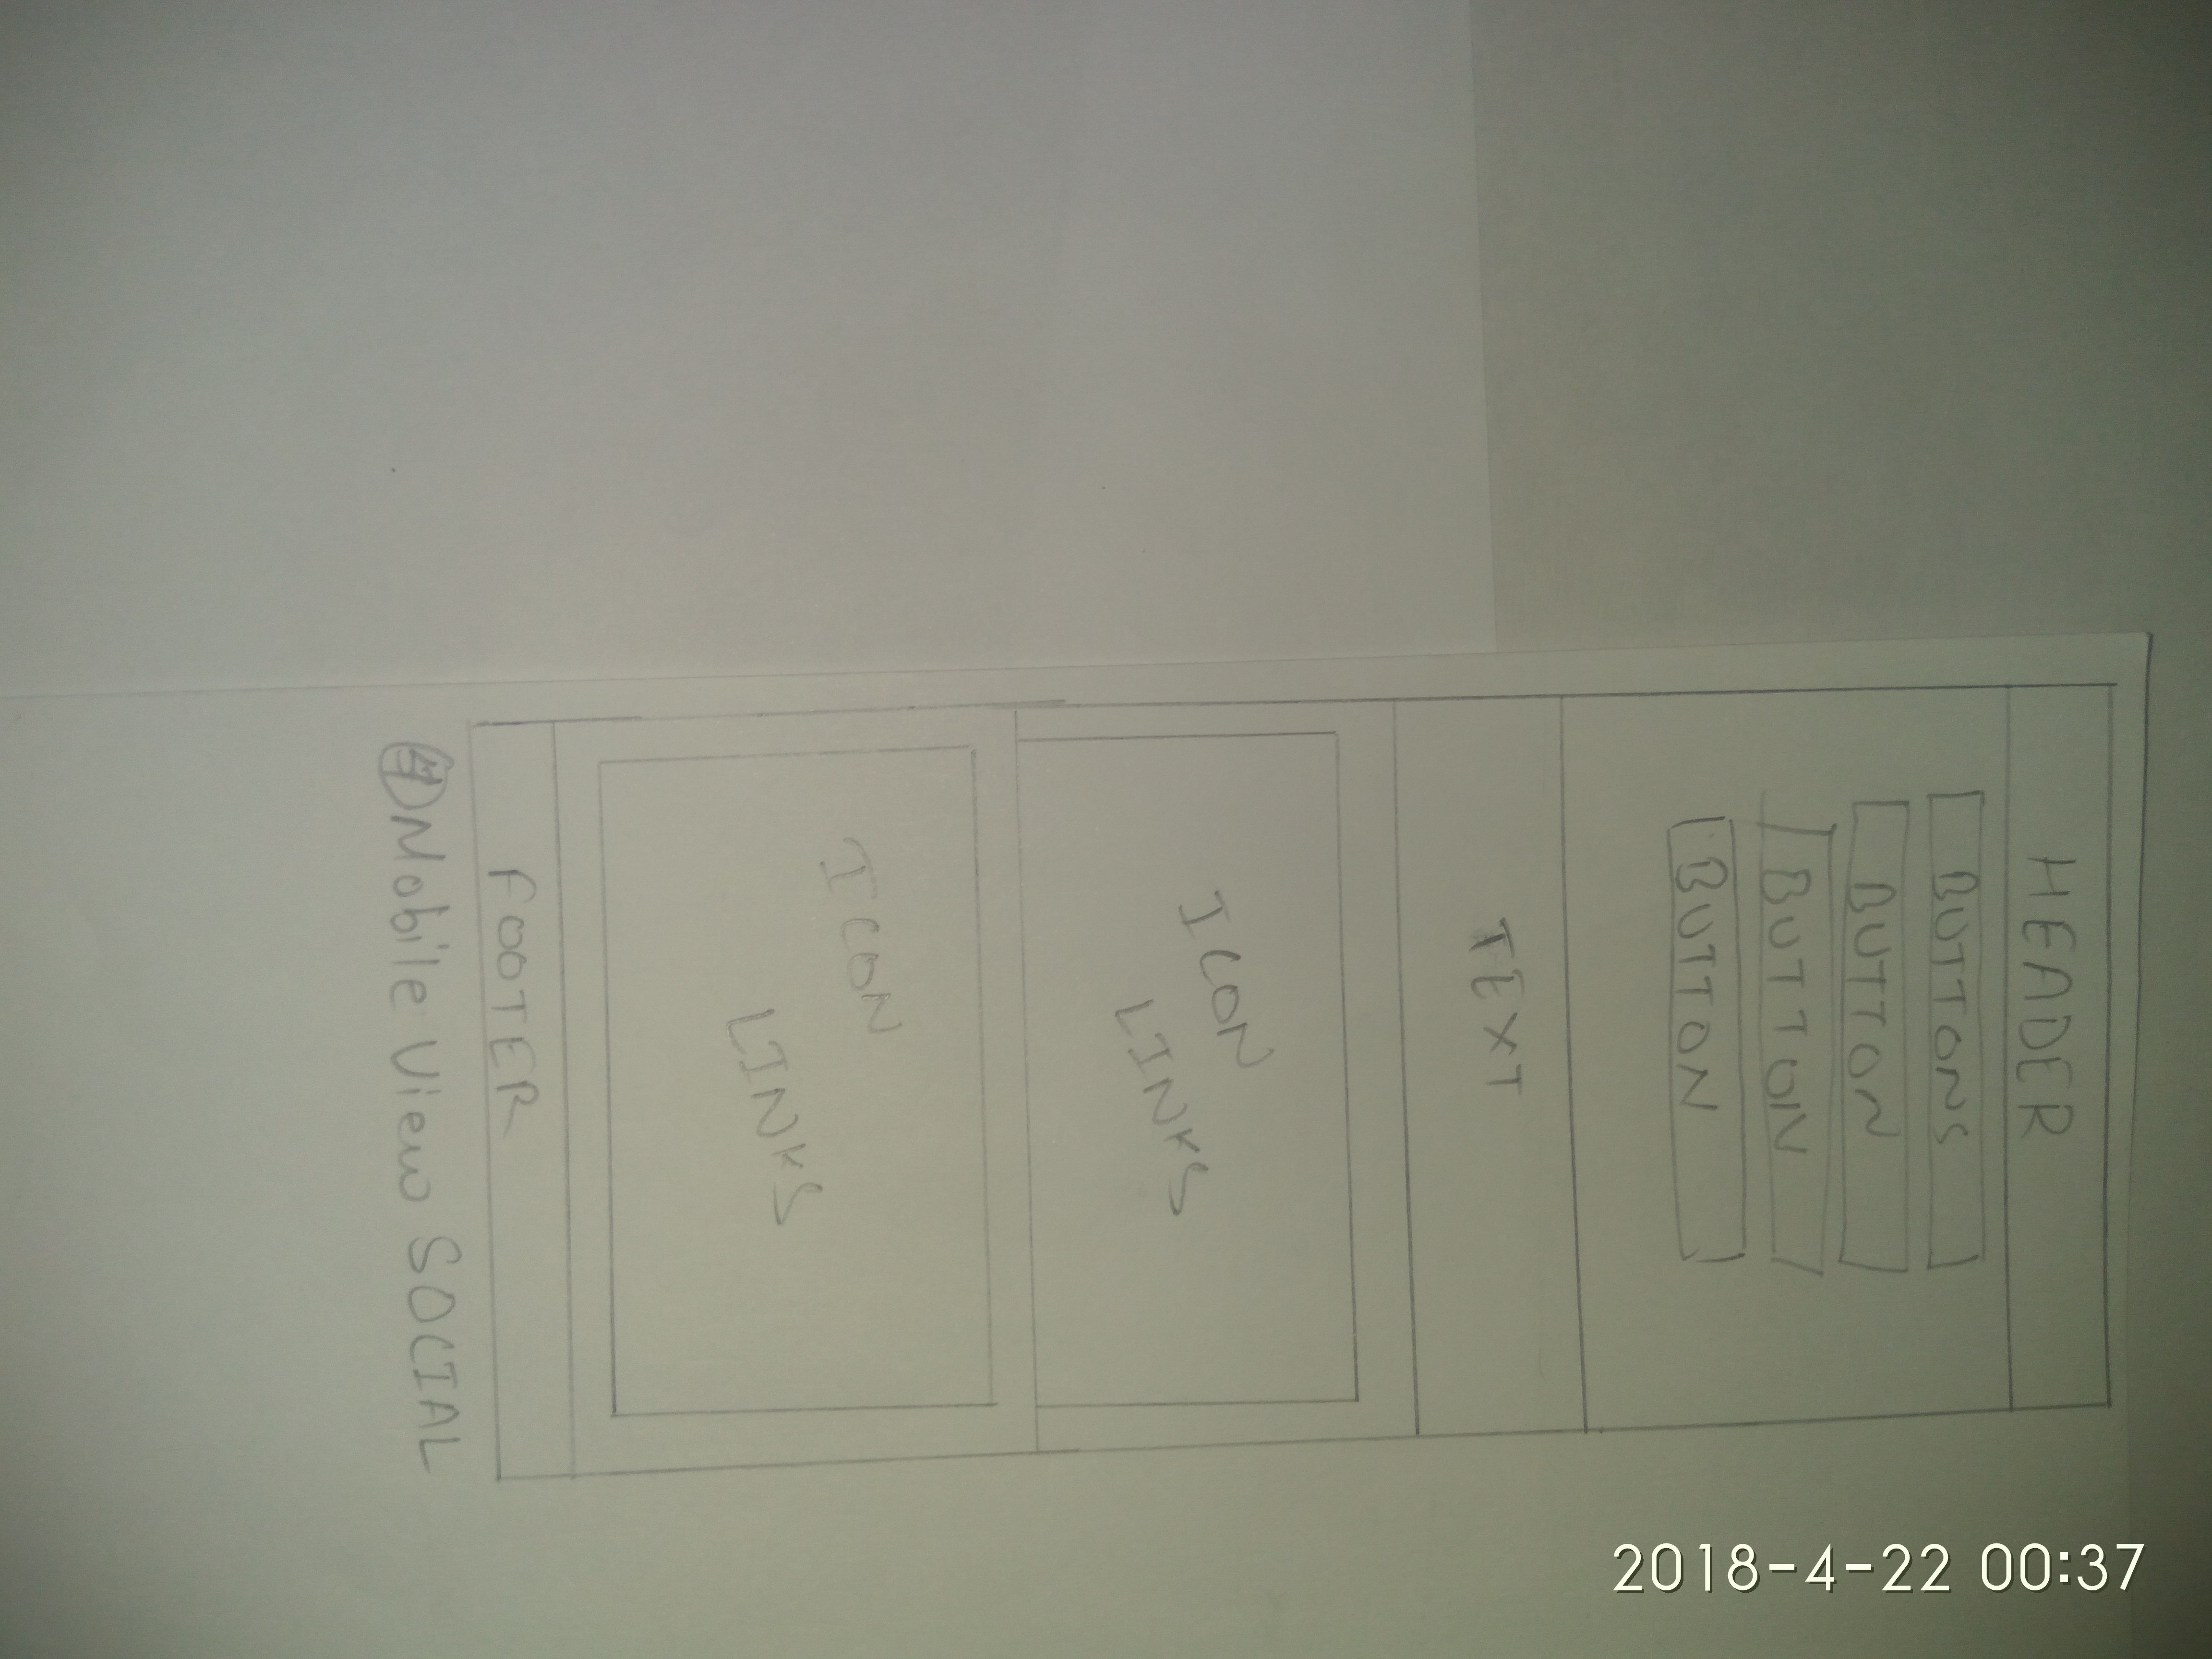 HEADER
BUTTONS
BUTTON
BUTTON
BUTTON
TEXT
ICON
LINKS
ICON
LINKS
FOOTER
Mobile View SOCIAL
2018-4-22 00:37